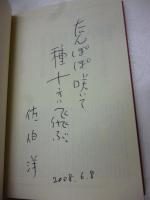 たんぽぽ咲いて
種十さい飛ぶ
佐伯洋
2008.6.8